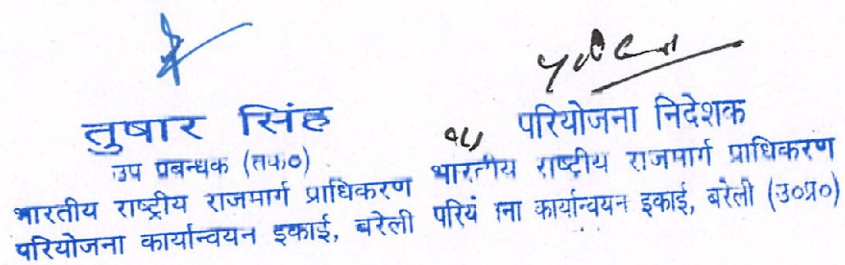 तुषार सिंह
उप प्रबन्धक (तक०)
भारतीय राष्ट्रीय राजमार्ग प्राधिकरण
परियोजना कार्यान्वयन इकाई, बरेली
परियोजना निदेशक
भारतीय राष्ट्रीय राजमार्ग प्राधिकरण
परियोजना कार्यान्वयन इकाई, बरेली (उ०प्र०)